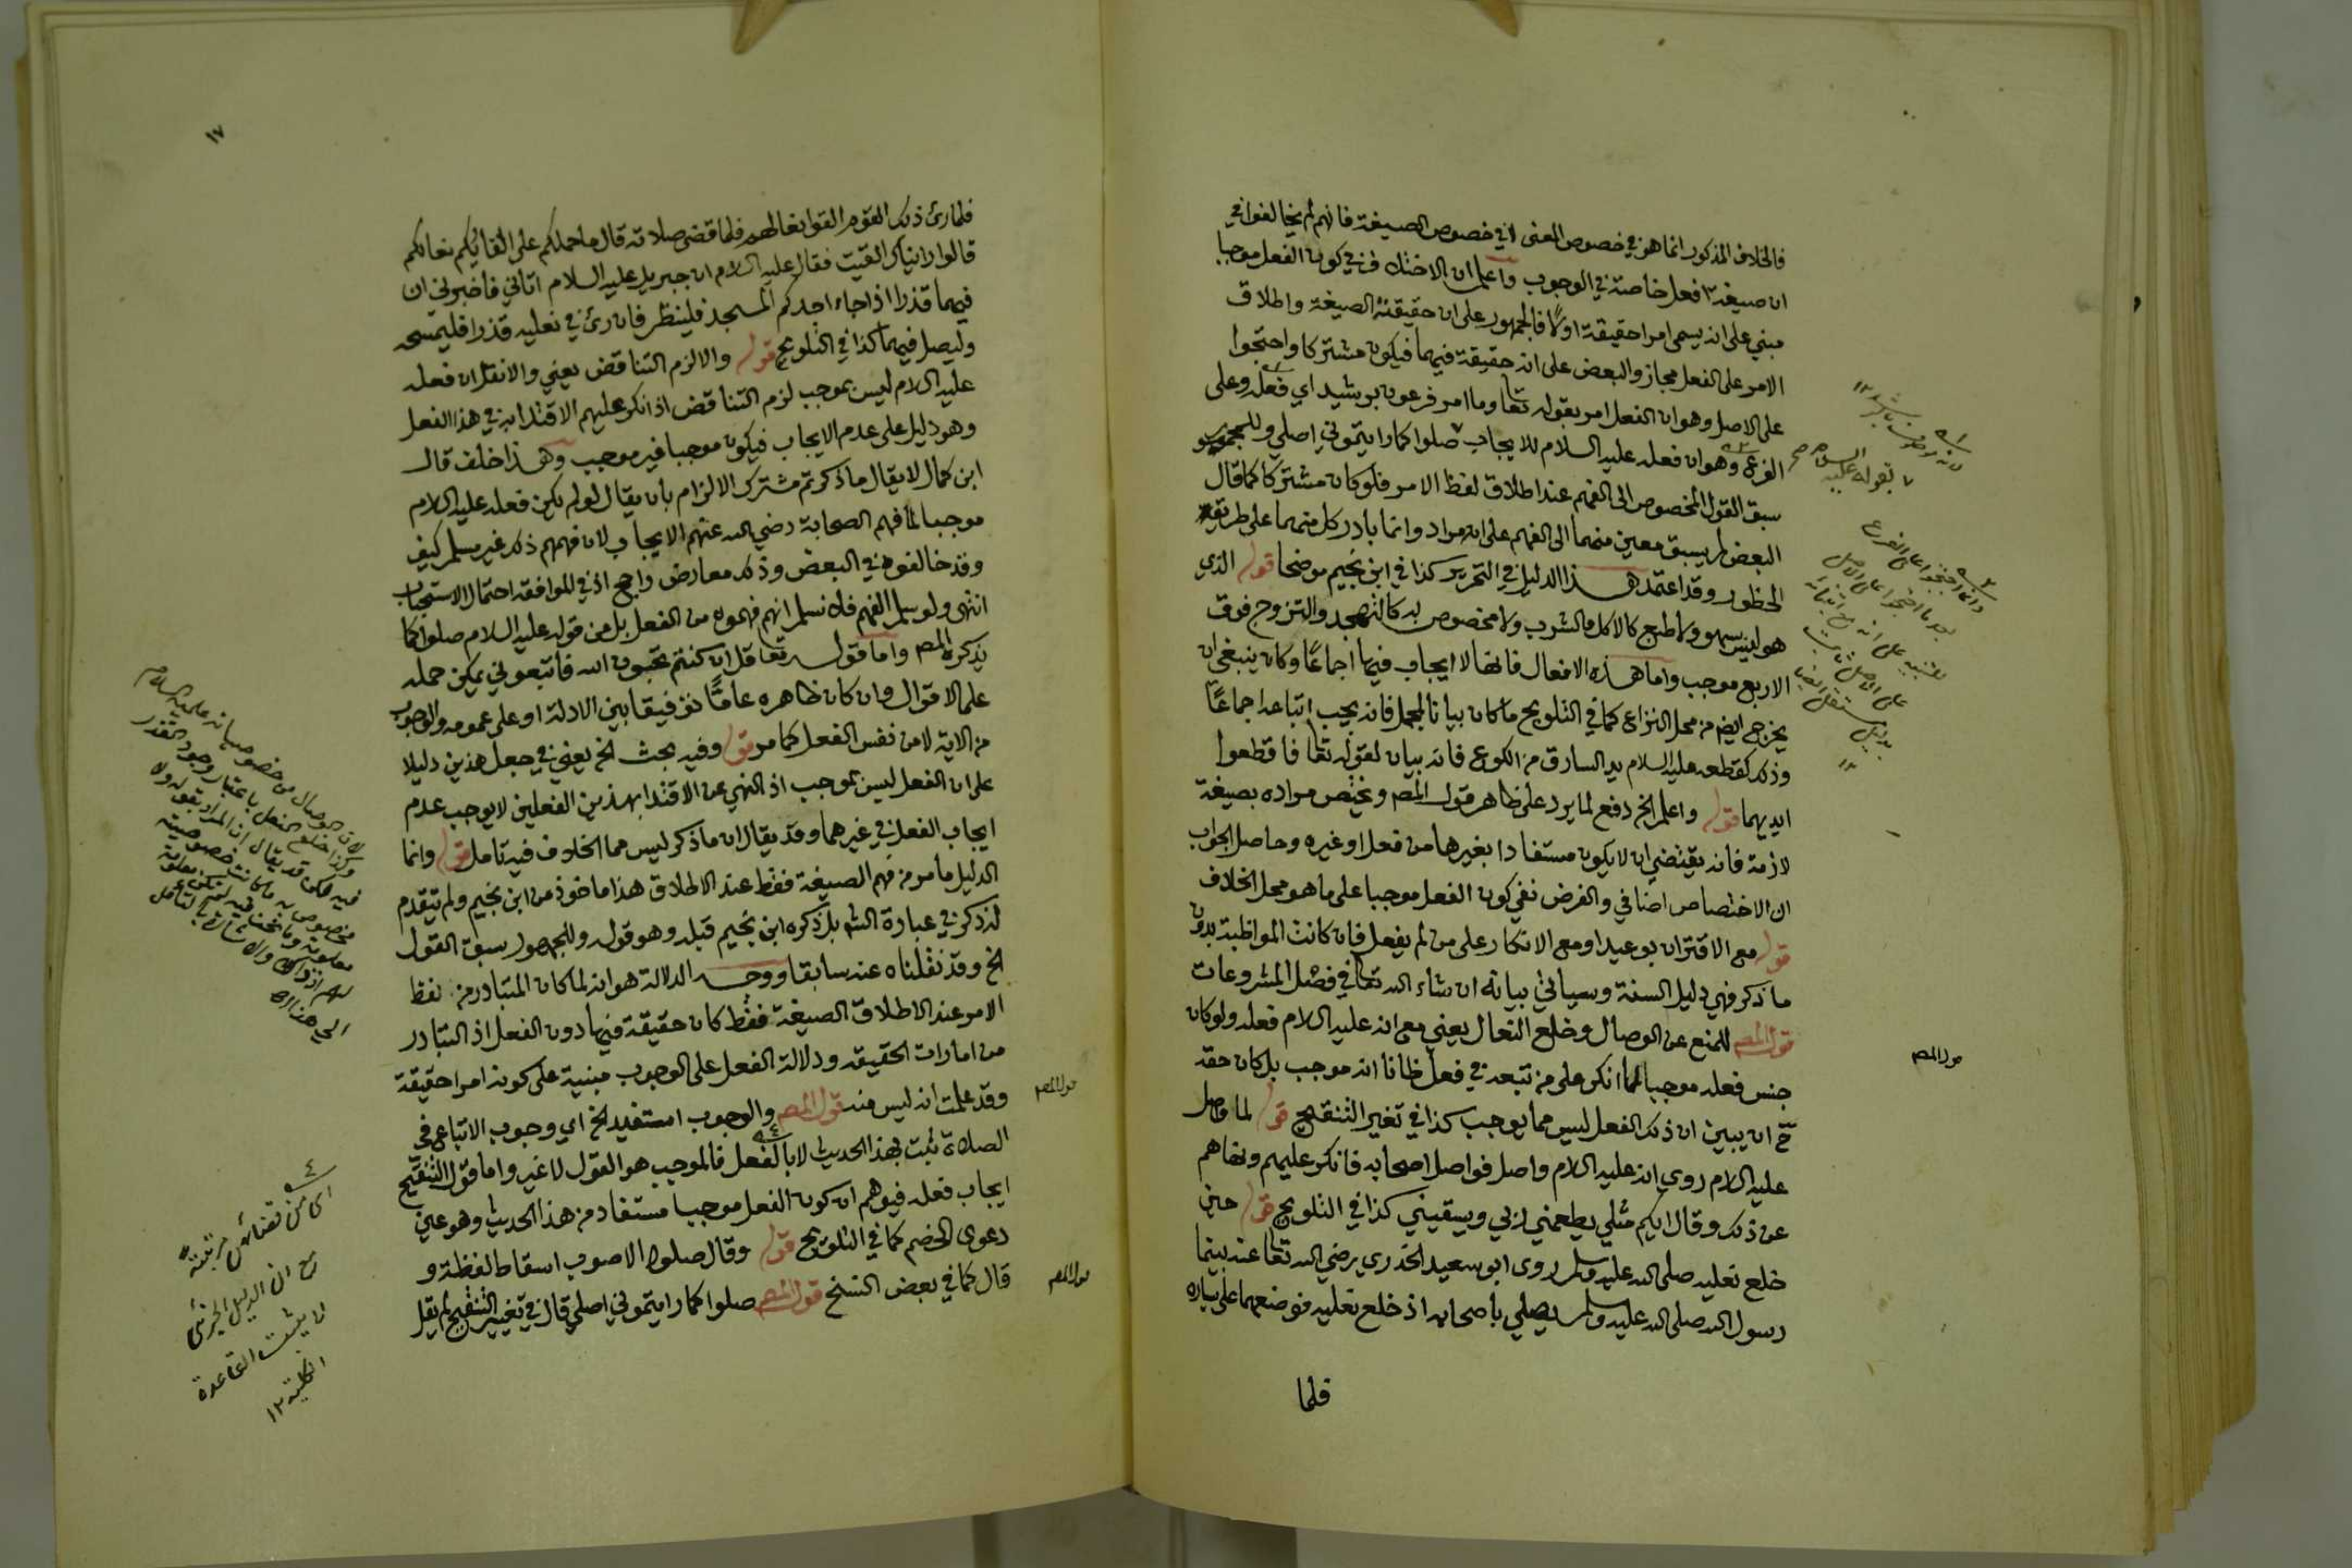 فالخلاف المذكور انما هو في خصوص المعنى لا في خصوص الصيغة فانهم لم يخالفوا في
ان صيغة افعل خاصة في الوجوب واعلم ان الاختلاف في كون الفعل موجبا
مبني على انه يسمى امرا حقيقة اولا فالجمهور على ان حقيقته الصيغة واطلاق
الامر على الفعل مجاز والبعض على انه حقيقة فيهما فيكون مشتركا واحتجوا
على الاصل وهو ان الفعل امر بقوله تعا وما امر فرعون برشيد اي فعله وعلى
الفرع وهو ان فعله عليه السلام للايجاب صلوا كما رايتموني اصلي وللجمهور
سبق القول المخصوص الى الفهم عند اطلاق لفظ الامر فلو كان مشتركا كما قال
البعض لم يسبق معين منهما الى الفهم على انه مراد وانما بادر كل منهما على طريق
الخطور وقد اعتمد هذا الدليل في التحرير كذا في ابن نجيم موضحا قوله الذي
هو ليس بسهو ولا طبع كالاكل والشرب ولا مخصوص به كالتهجد والتزوج فوق
الاربع موجب واما هذه الافعال فانها لا ايجاب فيها اجماعا وكان ينبغي ان
يخرج ايضا من محل النزاع كما في التلويح ما كان بيانا لمجمل فانه يجب اتباعه اجماعا
وذلك كقطعه عليه السلام يد السارق من الكوع فانه بيان لقوله تعا فاقطعوا
ايديهما قوله واعلم الخ دفع لما يرد على ظاهر قول المص ويختص مراده بصيغة
لازمة فانه يقتضي ان لا يكون مستفادا بغيرها من فعل او غيره وحاصل الجواب
ان الاختصاص اضافي والغرض نفي كون الفعل موجبا على ما هو محل الخلاف
قوله مع الاقتران بوعيد او مع الانكار على من لم يفعل فان كانت المواظبة بدون
ما ذكر فهي دليل السنة وسياتي بيانه ان شاء الله تعا في فصل المشروعات
قول المص للمنع عن الوصال وخلع النعال يعني مع انه عليه السلام فعله ولو كان
جنس فعله موجبا لما انكر على من تبعه في فعل ظانا انه موجب بل كان حقه
ح ان يبين ان ذلك الفعل ليس مما يوجب كذا في تغير التنقيح قوله لما واصل
عليه السلام روي انه عليه السلام واصل فواصل اصحابه فانكر عليهم ونهاهم
عن ذلك وقال ايكم مثلي يطعمني ربي ويسقيني كذا في التلويح قوله حين
خلع نعليه صلى الله عليه وسلم روى ابو سعيد الخدري رضي الله تعا عنه بينما
رسول الله صلى الله عليه وسلم يصلي باصحابه اذ خلع نعليه فوضعهما على يساره
فلما
بقوله عليه السلام صح
قول المص
١٧
فلما رئ ذلك القوم القوا نعالهم فلما قضى صلاته قال ما حملكم على القائكم نعالكم
قالوا رايناك القيت فقال عليه السلام ان جبريل عليه السلام اتاني فاخبرني ان
فيهما قذرا اذا جاء احدكم المسجد فلينظر فان رئ في نعليه قذرا فليمسحه
وليصل فيهما كذا في التلويح قوله والا لزم التناقض يعني والا نقل ان فعله
عليه السلام ليس بموجب لزم التناقض اذ انكر عليهم الاقتدا به في هذا الفعل
وهو دليل على عدم الايجاب فيكون موجبا غير موجب وهذا خلف قال
ابن كمال لا يقال ما ذكرتم مشترك الالزام بان يقال لو لم يكن فعله عليه السلام
موجبا لما فهم الصحابة رضي الله عنهم الايجاب لان فهمهم ذلك غير مسلم كيف
وقد خالفوه في البعض وذلك معارض راجح اذ في الموافقة احتمال الاستحباب
انتهى ولو سلم الفهم فلا نسلم انهم فهموه من الفعل بل من قوله عليه السلام صلوا كما
يذكره المص واما قوله تعا قل ان كنتم تحبون الله فاتبعوني يمكن حمله
على الاقوال وان كان ظاهره عاما توفيقا بين الادلة او على عمومه والوجوب
من الاية لا من نفس الفعل كما مر قوله وفيه بحث الخ يعني في جعل هذين دليلا
على ان الفعل ليس بموجب اذ النهي عن الاقتدا بهذين الفعلين لا يوجب عدم
ايجاب الفعل في غيرهما وقد يقال ان ما ذكر ليس مما الخلاف فيه تامل قوله وانما
الدليل ما مر من فهم الصيغة فقط عند الاطلاق هذا ماخوذ من ابن نجيم ولم يتقدم
له ذكر في عبارة الش بل ذكره ابن نجيم قبله وهو قوله وللجمهور سبق القول
الخ وقد نقلناه عنه سابقا ووجه الدلالة هو انه لما كان المتبادر من لفظ
الامر عند الاطلاق الصيغة فقط كان حقيقة فيها دون الفعل اذ التبادر
من امارات الحقيقة ودلالة الفعل على الوجوب مبنية على كونه امرا حقيقة
وقد علمت انه ليس منه قول المص والوجوب استفيد الخ اي وجوب الاتباع في
الصلاة ثبت بهذا الحديث لا بالفعل فالموجب هو القول لا غير واما قول التنقيح
ايجاب فعله فيوهم ان كون الفعل موجبا مستفاد من هذا الحديث وهو عين
دعوى الخصم كما في التلويح قوله وقال صلوا الاصوب اسقاط لفظة و
قال كما في بعض النسخ قول المص صلوا كما رايتموني اصلي قال في تغيير التنقيح لم يقل
قول المص
قول المص
ان الدليل الجزئي
لا يثبت القاعدة
الكلية ١٢